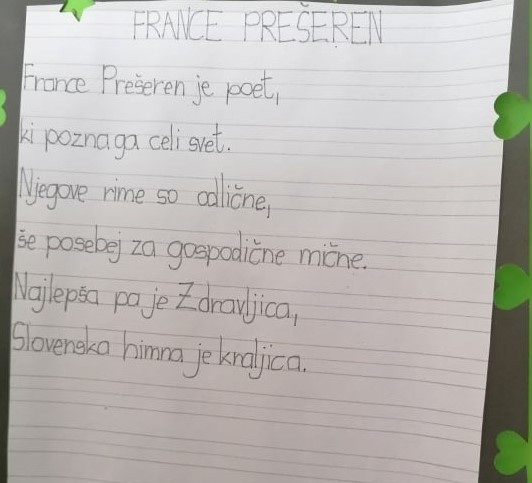 FRANCE PREŠEREN
France Prešeren je poet,
ki pozna ga celi svet.
Njegove rime so odlične,
še posebej za gospodične mične.
Najlepša pa je Zdravljica,
Slovenska himna je kraljica.